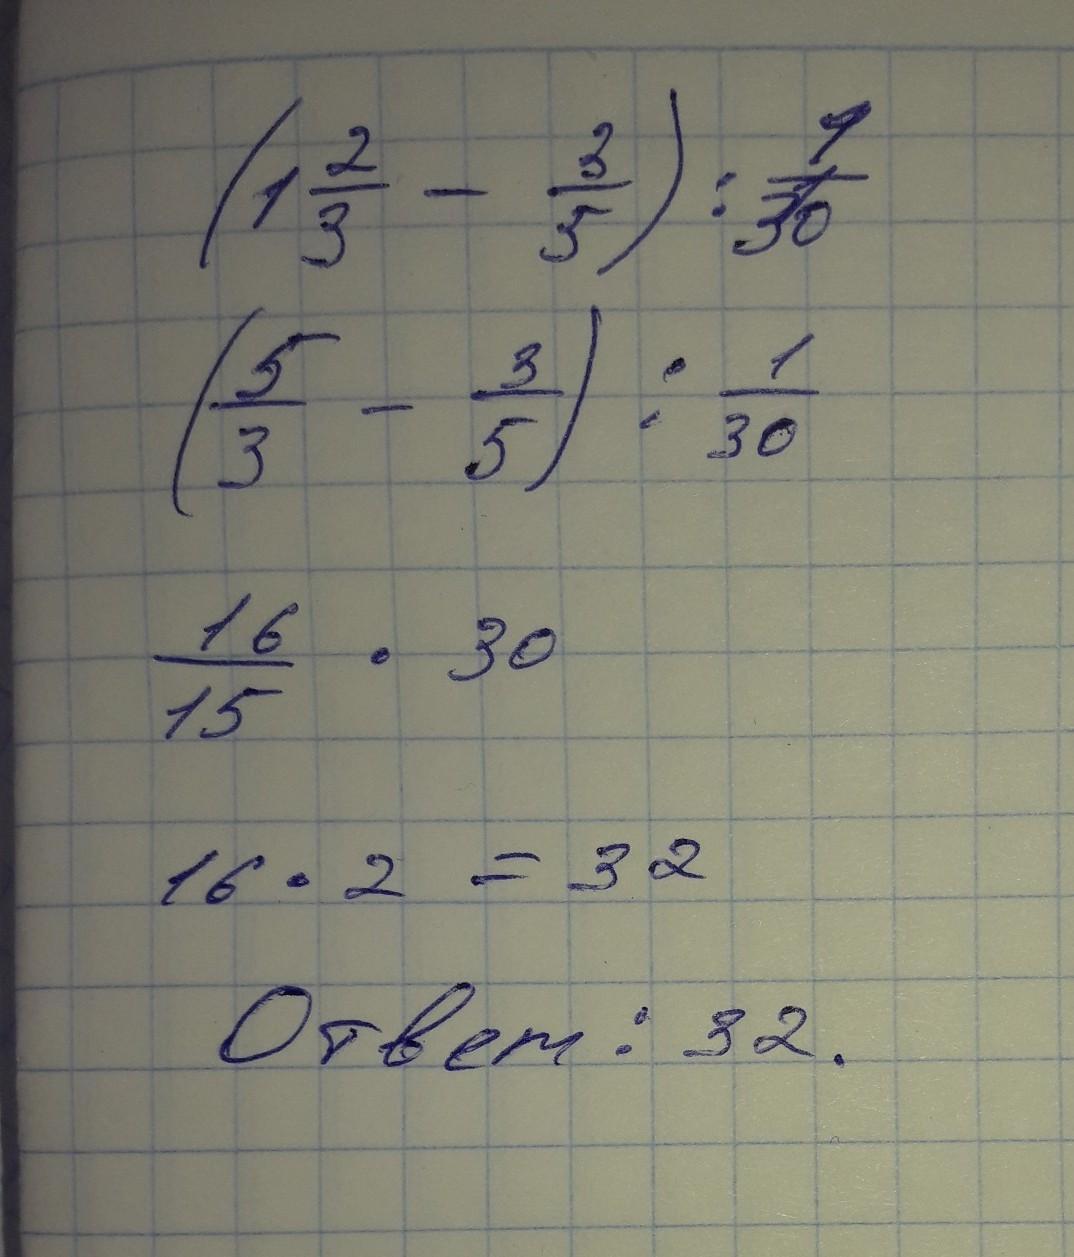 (1 2/3 - 3/5) : 1/30
(5/3 - 3/5) : 1/30
16/15 · 30
16 · 2 = 32
Ответ: 32.